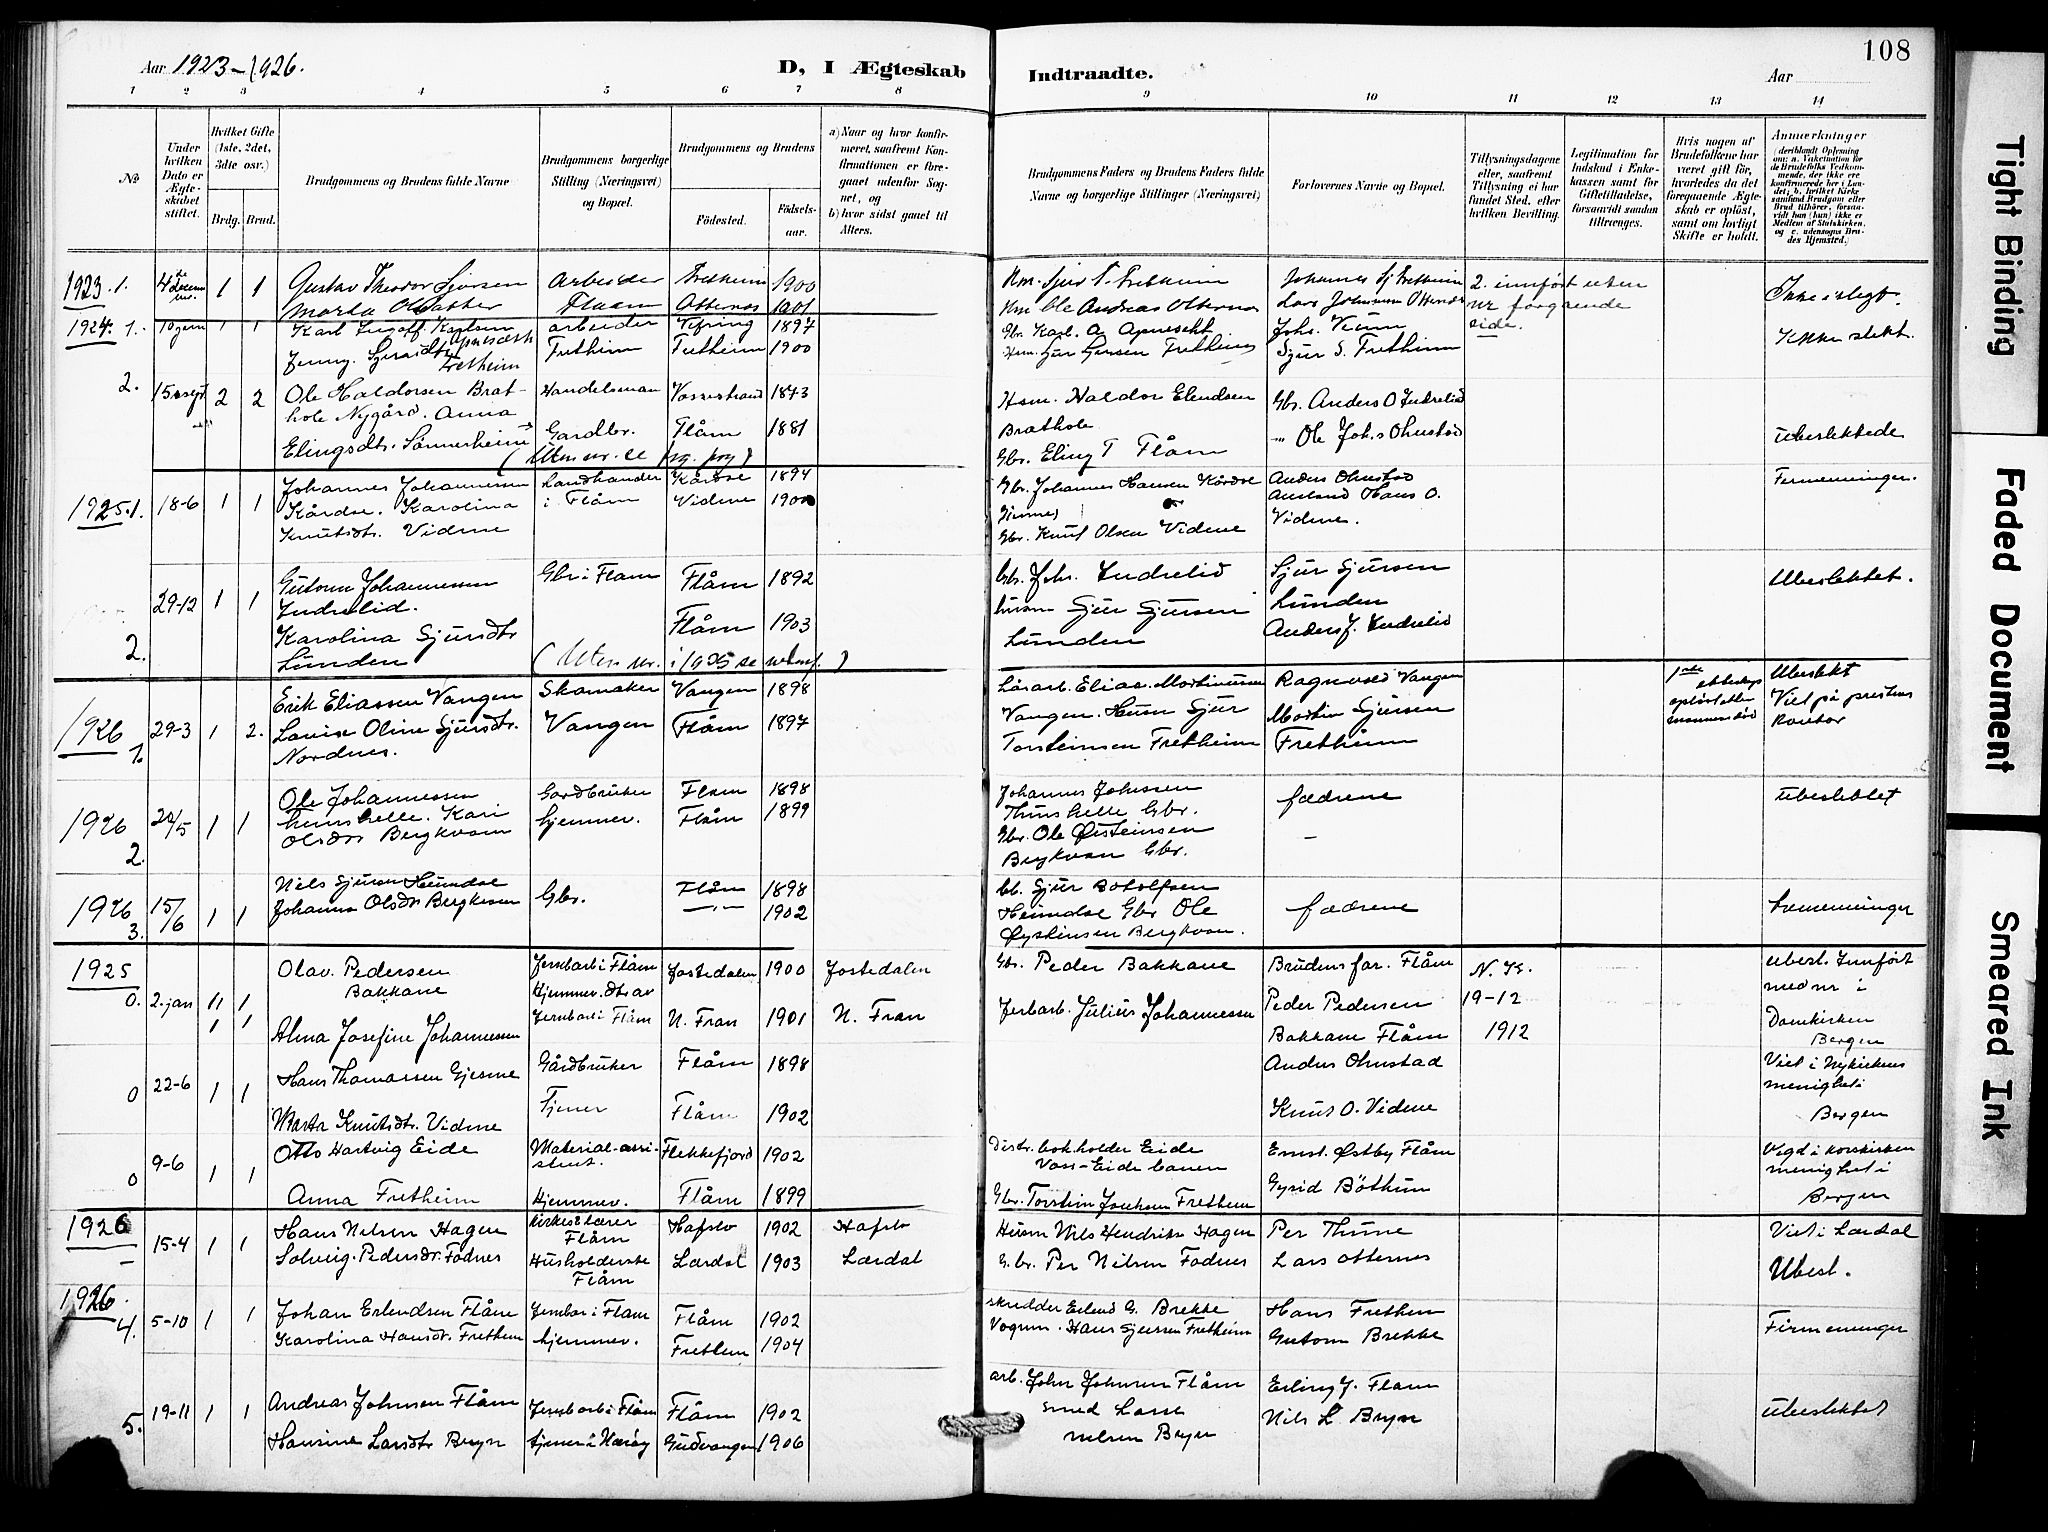 108
Aar 1923-1926.
D, I Ægteskab Indtraadte.
Aar
1 2 3 4 5 6 7 8 9 10 11 12 13 14
No
Under hvilken Dato er Ægteskabet stiftet.
Hvilket Gifte (1ste, 2det, 3die osv.)
Brdg. Brud.
Brudgommens og Brudens fulde Navne
Brudgommens borgerlige Stilling (Næringsvei) og Bopæl.
Brudgommens og Brudens
Födested.
Födselsaar.
a) Naar og hvor konfirmeret, saafremt Konfirmationen er foregaaet udenfor Sognet, og
b) hvor sidst gaaet til Alters.
Brudgommens Faders og Brudens Faders fulde Navne og borgerlige Stillinger (Næringsvei)
Forlovernes Navne og Bopæl.
Tillysningsdagene eller, saafremt Tillysning ei har fundet Sted, efter hvilken Bevilling.
Legitimation for Indskud i Enkekassen samt for Giftetilladelse, forsaavidt saadan tiltrænges.
Hvis nogen af Brudefolkene har været gift før, hvorledes da det foregaaende Ægteskab er opløst, samt om lovligt Skifte er holdt.
Anmerkninger
(deriblandt Oplysning om: a. Vakcination for de Brudefolks Vedkommende, der ikke ere konfirmerede her i Landet; b. hvilket Kirkesamfund Brudgom eller Brud tilhører, forsaavidt han (hun) ikke er Medlem af Statskirken, og c. udensogns Brudes Hjemsted.)
1923. 1. 1 1 Gustav Theodor Sjursen Arbeider Fretheim 1900
Marta Olsdatter Flaam Otternes 1901
Hm. Sjur T. Fretheim Johannes Sj Fretheim 2. innført uten
Hm Ole Andreas Otternes Lars Johannesen Otternes nr forgaaende
side.
Ikke i slegt.
1924. 1. 10 1 1 Karl Karlsen arbeider 1897
Jenny Sjursdtr Fretheim Fretheim Fretheim 1900
Gbr. Karl. A. Johs. Vinm
Hsm. Sjur Sjursen Fretheim Sjur S. Fretheim
Ikke slekt.
2. 15 sept 2 2 Ole Haldorsen Brathole Nygård. Anna Handelsmann Vossestrand 1873
Elingsdtr. Sønnerheim Gardbr. Flåm 1881
(Uten nr. se
Hsm. Haldor Elendsen Brathole Gbr. Anders O Indrelid
Gbr. Eling T Flåm Ole Johs Ohnstad
Ubeslektede
1925. 1. 18-6 1 1 Johannes Johannessen Kårdse. Karolina Landhandler Kårdse 1894
Knutsdtr. Vidme i Flåm Vidme 1900
Gbr. Johannes Hansen Kårdse Anders Ohnstad
Gbr. Knut Olsen Vidme Hans O. Vidme.
Fermenninger.
2. 29-12 1 1 Gutorm Johannessen Indrelid. Gbr i Flam Flåm 1892
Karolina Sjursdtr Lunden Flåm 1903
(Uten nr. i 1925 se nedenf.)
Gbr. Joh. Indrelid Sjur Sjursen Lunden
husm Sjur Sjursen Lunden Anders J. Indrelid
Ubeslektet.
1926 1. 29-3 1 2. Erik Eliassen Vangen Skomaker Vangen 1898
Lovise Oline Sjursdtr. Nordnes. Vangen Flåm 1897
Løsarb. Elias Mortinussen Vangen. Husm Sjur Torsteinsen Fretheim
Ragnvald Vangen
Martin Sjursen Fretheim
1ste ekteskap opløst etter mannens død
Ubeslekt
Viet på prestens kontor
1926 2. 24/5 1 1 Ole Johannessen Thunshelle. Kari Gardbruker Flam 1898
Olsdtr Bergkvam hjemmev. Flåm 1899
Johannes Johnssen Thunshelle Gbr. fædrene
Gbr. Ole Øisteinsen Bergkvam Gbr. -
Ubeslektet
1926 3. 15/6 1 1 Nils Sjursen Heimdal Gbr. Flåm 1898
Johanna Olsdtr Bergkvam -"- 1902
Gb. Sjur Botolfsen Heimdal Gbr Ole Øysteinsen Bergkvam. fædrene
tremenninger
1925
0. 2. jan 1 1 Olav Pedersen Bakkane Jernbarb i Flåm Jostedalen 1900 Jostedalen
1 1 Alma Josefine Johannessen Hjemmev. dtr av Jernbarb i Flåm N. Fran 1901 N. Fran
Gbr. Peder Bakkane Brudens far. Flåm N. Is.
Jerbarb. Julius Johannessen Peder Pedersen Bakkane Flåm 19-12 1912
Ubesl. Innført med nr i Domkirken Bergen
0 22-6 1 1 Hans Thomassen Gjesme Gårdbruker Flåm 1898
Marta Knutsdtr. Vidme Tjener Flåm 1902
Anders Ohnstad
Knut O. Vidme
Viet i Nykirkens menighet i Bergen
0 9-6 1 1 Otto Hartvig Eide Material-assistent. Flekkefjord 1902
Anna Fretheim Hjemmev. Flåm 1899
Distr. bokholder Eide Voss-Eide banen Ernst. Østby Flåm
Gbr. Torstein Fretheim Gyrid Böthun
Vigd i korskirken menighet i Bergen
1926
- 15-4 1 1 Hans Nilsen Hagen kirkesanger Flåm Hafslo 1902 Hafslo
Solveig Pedersdtr. Fodnes Husholderske Flåm Lærdal 1903 Lærdal
Husm Nils Hendriks Hagen Per Thune
Gbr. Per Nilsen Fodnes Lars Otternes
Viet i Lærdal
Ubesl.
1926. 4. 5-10 1 1 Johan Erlendsen Flåm Jernbar i Flam Flåm 1902
Karolina Hansdtr. Frethem hjemmev. Frethem 1904
skredder Erlend G. Brekke Hans Frethem
Vognm. Hans Sjursen Fretheim Gutorm Brekke
Firmenninger
5. 19-11 1 1 Andreas Johnsen Flåm Jernbarb i Flåm Flåm 1902
Hansine Larsdtr Bryn tjener i Nærøy Gudvangen 1906
arb. John Johnsen Flåm Erling J. Flam
smed Lasse Nilsen Bryn Nils L Bryn
Ubeslektet
Tight Binding
Faded Document
Smeared Ink